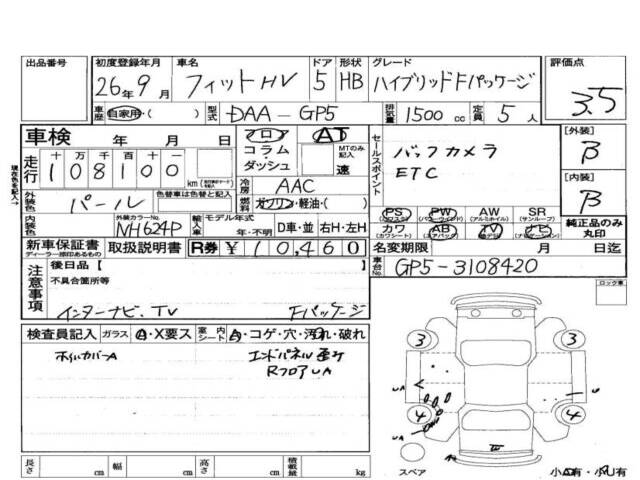 出品番号
初度登録年月
車名
ドア
形状
グレード
評価点
26年 9月
フィットHV
5
HB
ハイブリッドFパッケージ
3.5
車歴
自家用・( )
型式
DAA-GP5
排気量
1500 cc
定員
5人
車検
年 月 日
フロア
コラム・ダッシュ
AT
MTのみ記入
速
セールスポイント
バックカメラ
ETC
[外装]
B
[内装]
B
走行
十 万 千 百 十 一
1 0 8 1 0 0
km
冷房
AAC
外装色
パール
色替車は色替と記入
燃料
ガソリン・軽油・( )
PS
PW
AW
SR
(パワステ)
(パワーウィンド)
(アルミホイル)
(サンルーフ)
カワ
AB
TV
ナビ
(カワシート)
(エアバッグ)
純正品のみ丸印
内装色
外装カラーNo.
NH624P
輸入車
モデル年式
年・不明
D車・並
右H・左H
新車保証書
ディーラー捺印あるもの
取扱説明書
R券 ¥10,460
名変期限
月 日迄
車台No.
GP5-3108420
注意事項
後日品[ ]
不具合箇所等
インターナビ、TV
Fパッケージ
ロック車
検査員記入
ガラス
A・X要ス
室内
シート
A・コゲ・穴・汚れ・破れ
ホイルカバーA
エンドパネル歪み
RフロアUA
3
3
4
4
UA
UA
スペア
小A有・小U有
長さ
cm
幅
cm
高さ
cm
積載量
kg